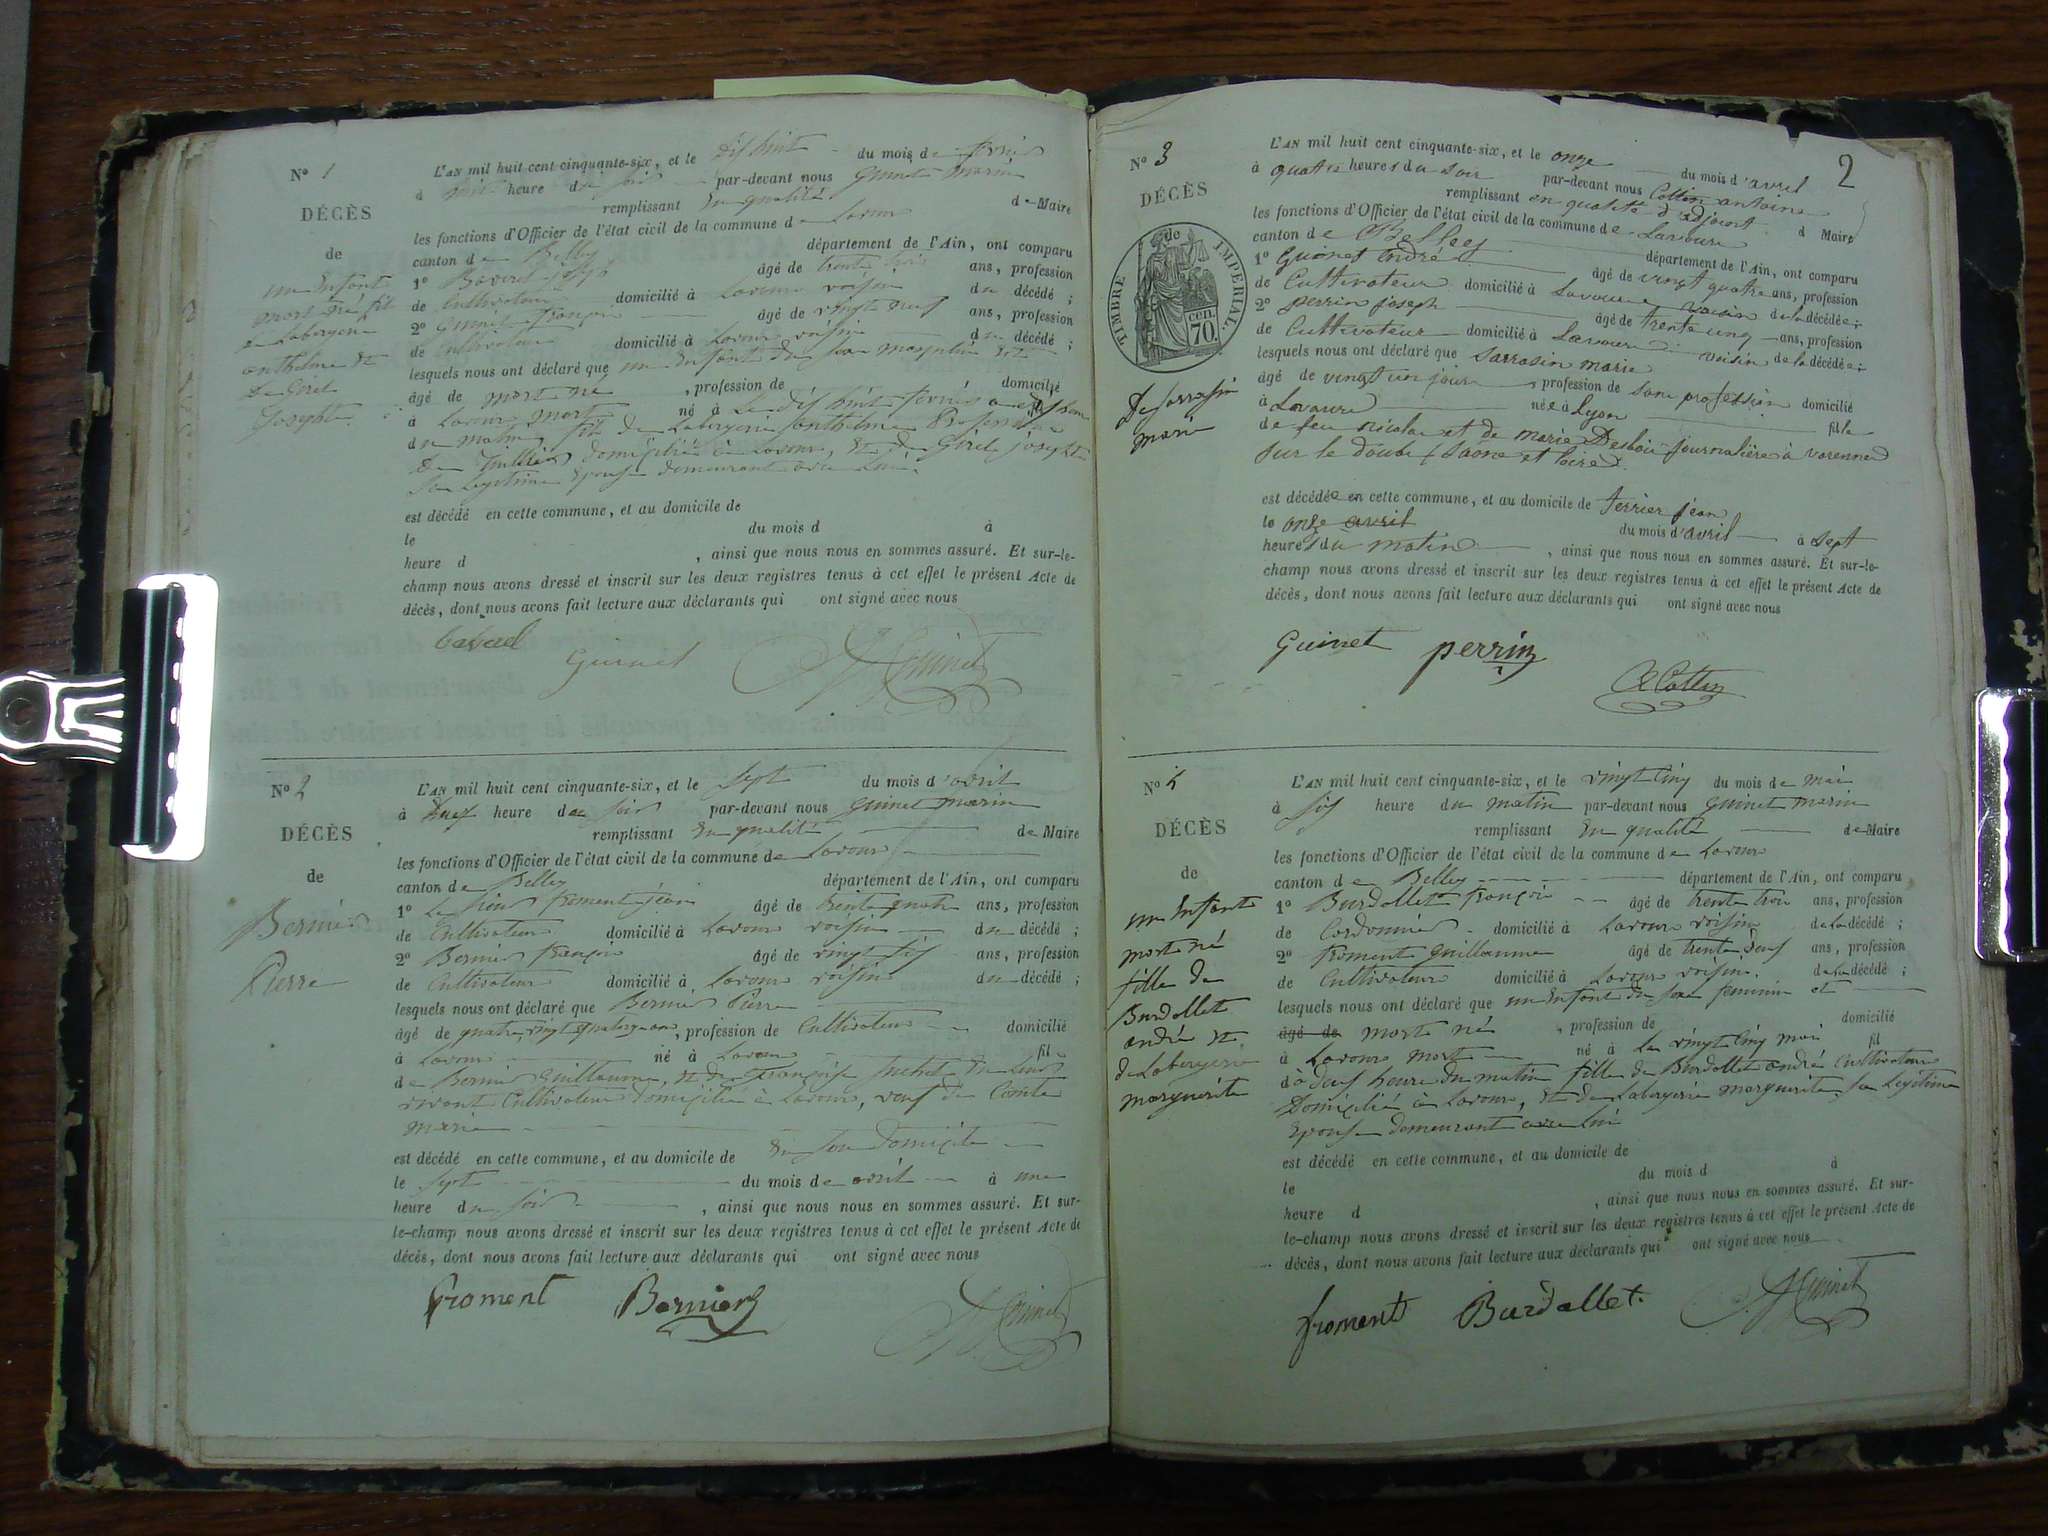 N° 1
DÉCÈS
de
un Enfant
mort né fils
de Labeyrie
anthelme et
de Girel
Josephte
L'AN mil huit cent cinquante-six, et le dis huit du mois de fevrier
à heure du soir par-devant nous Guinet marin
remplissant En qualité de Maire
les fonctions d'Officier de l'état civil de la commune de Lavour
canton de Belley département de l'Ain, ont comparu
1° âgé de trente trois ans, profession
de Cultivateur domicilié à Lavour voisin du décédé ;
2° Guinet françois âgé de vingt neuf ans, profession
de Cultivateur domicilié à Lavour voisin du décédé ;
lesquels nous ont déclaré que un Enfant du sexe masculin est
âgé de mort né , profession de domicilié
à Lavour mort né à Le dis huit fevrier a
du matin fils de anthelme
domicilié à Lavour, et de Girel josephte
Sa Legitime Epouse demeurant avec Lui.
est décédé en cette commune, et au domicile de
le du mois d à
heure d , ainsi que nous nous en sommes assuré. Et sur-le-
champ nous avons dressé et inscrit sur les deux registres tenus à cet effet le présent Acte de
décès, dont nous avons fait lecture aux déclarants qui ont signé avec nous
Guinet Guinet
N° 2
DÉCÈS
de
Bernier
Pierre
L'AN mil huit cent cinquante-six, et le sept du mois d'avril
à heure du soir par-devant nous Guinet marin
remplissant En qualité de Maire
les fonctions d'Officier de l'état civil de la commune de Lavour
canton de Belley département de l'Ain, ont comparu
1° Le sieur froment jean âgé de trente quatre ans, profession
de Cultivateur domicilié à Lavour voisin du décédé ;
2° Bernier françois âgé de vingt six ans, profession
de Cultivateur domicilié à Lavour voisin du décédé ;
lesquels nous ont déclaré que Bernier Pierre
âgé de quatre vingt quatorze ans, profession de Cultivateur domicilié
à Lavour né à Lavour fils
de Bernier Guillaume, et de françoise du Leur
vivant Cultivateur domicilié à Lavour, veuf de Comte
marie
est décédé en cette commune, et au domicile de En son Domicile
le sept du mois de avril à une
heure du soir , ainsi que nous nous en sommes assuré. Et sur-
le-champ nous avons dressé et inscrit sur les deux registres tenus à cet effet le présent Acte de
décès, dont nous avons fait lecture aux déclarants qui ont signé avec nous
froment Bernier Guinet
2
N° 3
DÉCÈS
de
TIMBRE IMPERIAL.
70 cen.
De Sarrasin
marie
L'AN mil huit cent cinquante-six, et le onze du mois d'avril
à quatre heures du soir par-devant nous Cottin antoine
remplissant en qualité d'adjoint d Maire
les fonctions d'Officier de l'état civil de la commune de Lavour
canton de Belley département de l'Ain, ont comparu
1° Guinet André âgé de vingt quatre ans, profession
de Cultivateur domicilié à Lavour voisin de la décédée ;
2° perrin joseph âgé de trente cinq ans, profession
de Cultivateur domicilié à Lavour voisin de la décédée ;
lesquels nous ont déclaré que Sarrasin marie
âgé de vingt un jour , profession de sans profession domicilié
à Lavour née à Lyon fille
de feu nicolas et de marie Desbois journalière à varenne
sur le doubs (saone et loire).
est décédée en cette commune, et au domicile de Terrier jean
le onze avril du mois d'avril à sept
heures du matin , ainsi que nous nous en sommes assuré. Et sur-le-
champ nous avons dressé et inscrit sur les deux registres tenus à cet effet le présent Acte de
décès, dont nous avons fait lecture aux déclarants qui ont signé avec nous
Guinet perrin Cottin
N° 4
DÉCÈS
de
un Enfant
mort né
fille de
Burdallet
andré et
de Labeyrie
marguerite
L'AN mil huit cent cinquante-six, et le vingt cinq du mois de mai
à six heure du matin par-devant nous Guinet marin
remplissant En qualité de Maire
les fonctions d'Officier de l'état civil de la commune de Lavour
canton de Belley département de l'Ain, ont comparu
1° Burdallet françois âgé de trente trois ans, profession
de Cordonnier domicilié à Lavour voisin de La décédé ;
2° froment Guillaume âgé de trente neuf ans, profession
de Cultivateur domicilié à Lavour voisin de La décédé ;
lesquels nous ont déclaré que un Enfant du sexe feminin et
âgé de mort né , profession de domicilié
à Lavour mort né à Le vingt cinq mai fil
d à deux heure du matin fille de Burdallet andré Cultivateur
Domicilié à Lavour, et de Labeyrie marguerite, sa Legitime
Epouse demeurant avec Lui
est décédé en cette commune, et au domicile de
le du mois d à
heure d , ainsi que nous nous en sommes assuré. Et sur-
le-champ nous avons dressé et inscrit sur les deux registres tenus à cet effet le présent Acte de
décès, dont nous avons fait lecture aux déclarants qui ont signé avec nous
froment Burdallet. Guinet